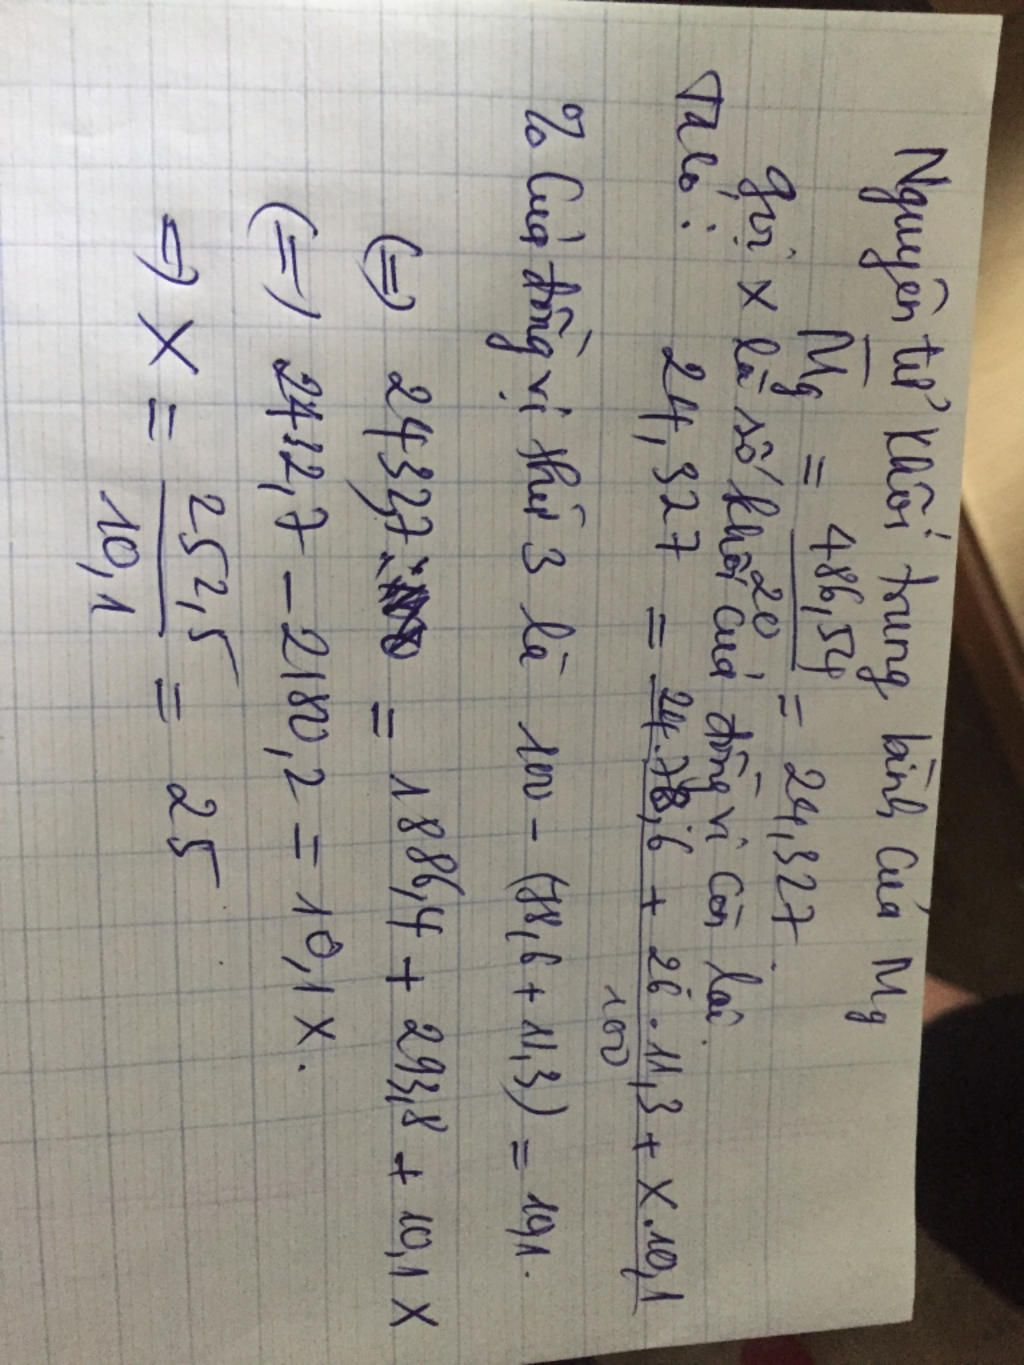 Nguyên tử khối trung bình của Mg
Mg = 486,54 / 20 = 24,327
gọi x là số khối của đồng vị còn lại.
Ta có: 24,327 = 24.78,6 + 26.11,3 + x.10,1 / 100
% của đồng vị thứ 3 là 100 - (78,6 + 11,3) = 10,1.
(=) 2432,7 = 1886,4 + 293,8 + 10,1 x
(=) 2432,7 - 2180,2 = 10,1 x.
=) x = 252,5 / 10,1 = 25